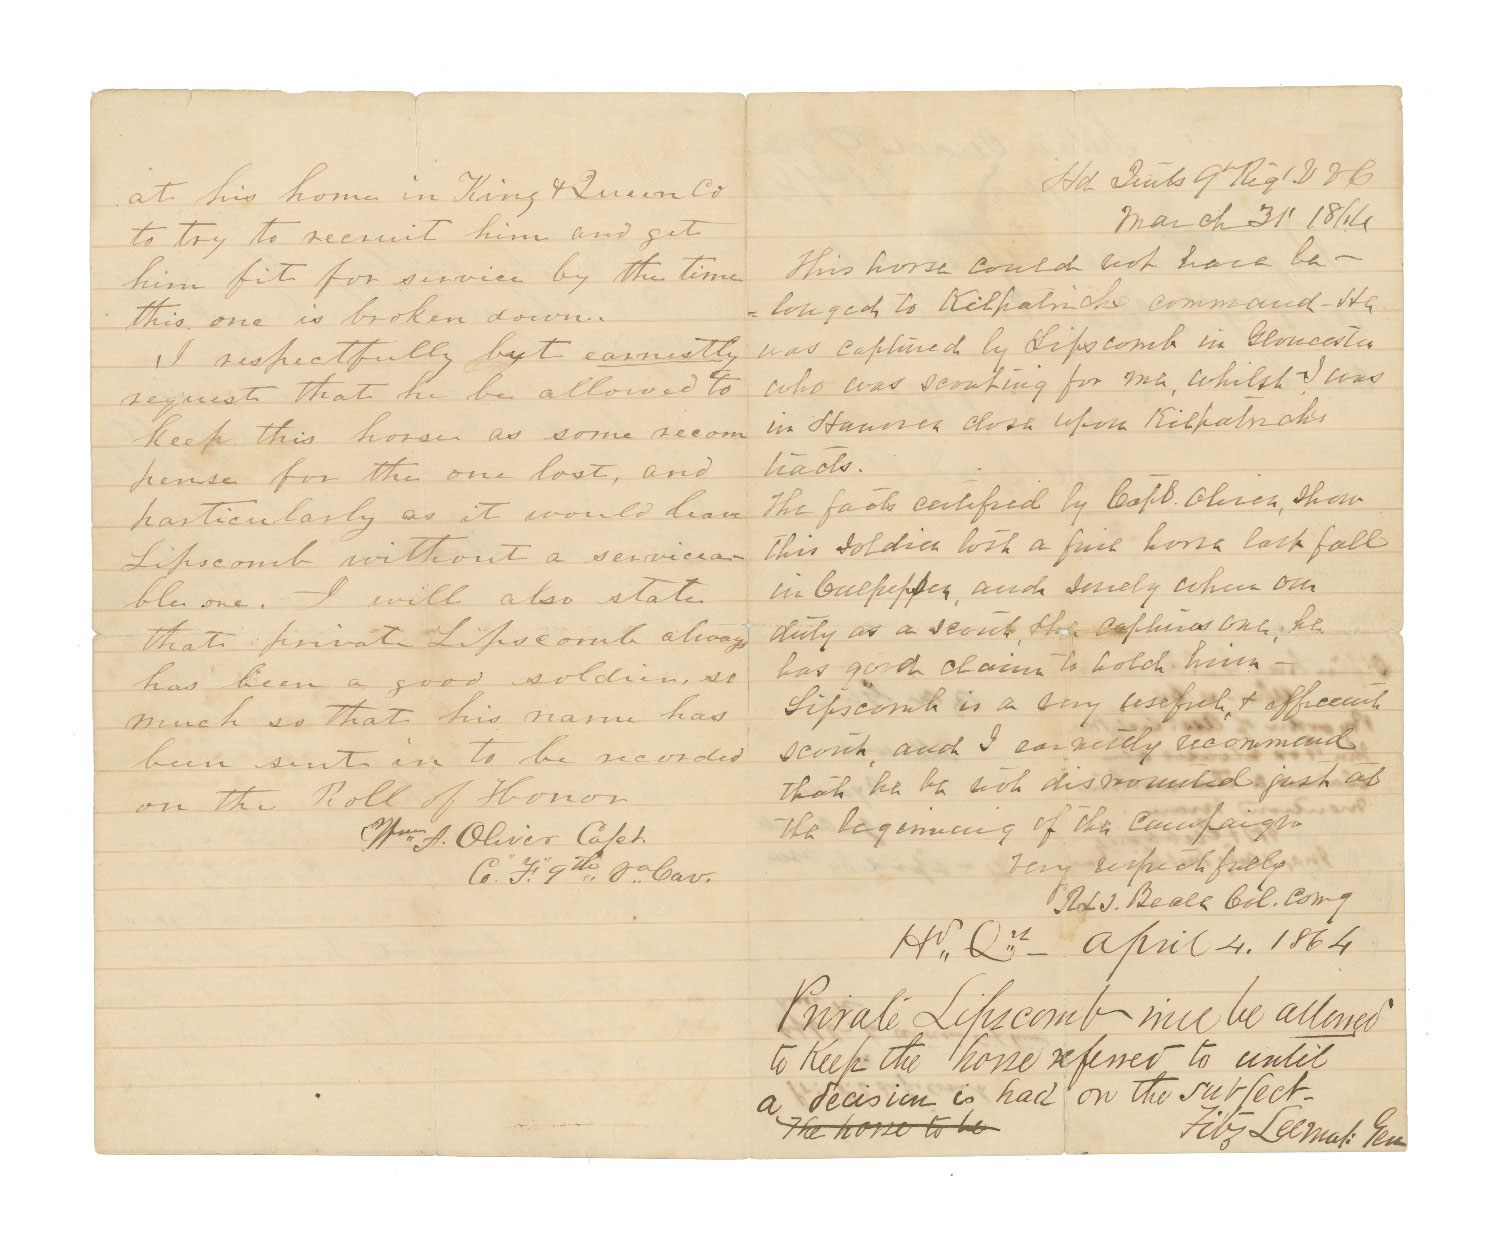 at his home in King & Queen Co
to try to recruit him and get
him fit for service by the time
this one is broken down.
I respectfully but earnestly
request that he be allowed to
keep this horse as some recom
pense for the one lost, and
particularly as it would leave
Lipscomb without a servicea-
ble one. I will also state
that private Lipscomb always
has been a good soldier, so
much so that his name has
been sent in to be recorded
on the Roll of Honor
Wm. J. Oliver Capt.
Co. "F" 9th Va Cav.
Hd Qurts 9th Regt V V C
March 31st 1864
This horse could not have be-
-longed to Kilpatricks command - He
was captured by Lipscomb in Gloucester
who was scouting for me, whilst I was
in Hanover close upon Kilpatricks
tracts.
The facts certified by Capt. Oliver, show
this soldier lost a fine horse last fall
in Culpepper, and surely when on
duty as a scout, he captures one, he
has good claim to hold him -
Lipscomb is a very useful, & efficient
scout, and I earnestly recommend
that he be not dismounted just at
the beginning of the campaign
very respectfully
R L T. Beale Col. Comg
Hd. Qrs - April 4. 1864
Private Lipscomb will be allowed
to keep the horse referred to until
a decision is had on the subject -
The horse to be
Fitz Lee Maj: Gen